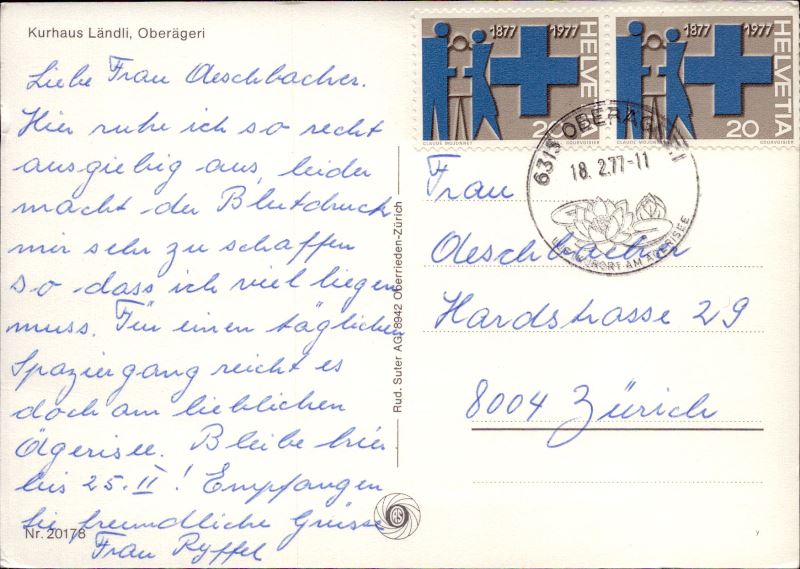 Kurhaus Ländli, Oberägeri
Liebe Frau Aeschbacher.
Hier ruhe ich so recht
ausgiebig aus, leider
macht der Blutdruck
mir sehr zu schaffen
so dass ich viel liegen
muss. Für einen täglichen
Spaziergang reicht es
doch am lieblichen
Ägerisee. Bleibe hier
bis 25. II! Empfangen
Sie freundliche Grüsse
Frau Ryffel
Nr. 20178
Rud. Suter AG, 8942 Oberrieden-Zürich
RS
1877 1977
HELVETIA
20
CLAUDE MOJONNET COURVOISIER
1877 1977
HELVETIA
20
CLAUDE MOJONNET COURVOISIER
6315 OBERÄGERI
18.2.77-11
KURORT AM ÄGERISEE
Frau
Aeschbacher
Hardstrasse 29
8004 Zürich
y